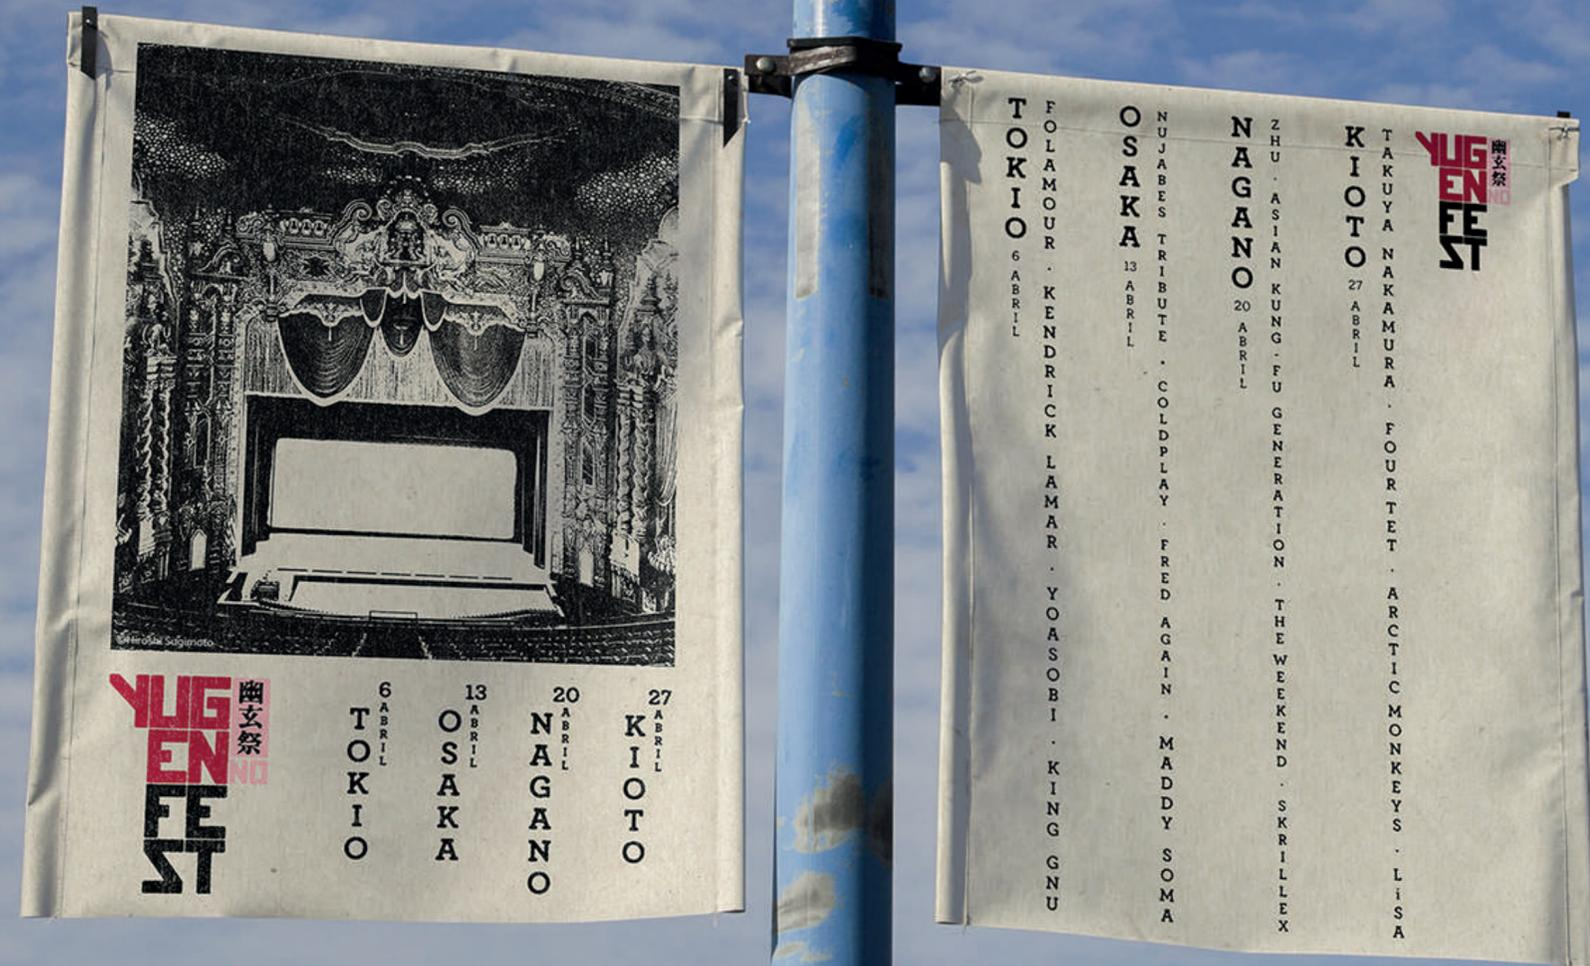 ©Hiroshi Sugimoto
YUG
EN
NO
FE
ST
幽玄祭
6 ABRIL
TOKIO
13 ABRIL
OSAKA
20 ABRIL
NAGANO
27 ABRIL
KIOTO
TOKIO 6 ABRIL
FOLAMOUR · KENDRICK LAMAR · YOASOBI · KING GNU
OSAKA 13 ABRIL
NUJABES TRIBUTE · COLDPLAY · FRED AGAIN · MADDY SOMA
NAGANO 20 ABRIL
ZHU · ASIAN KUNG-FU GENERATION · THE WEEKEND · SKRILLEX
KIOTO 27 ABRIL
TAKUYA NAKAMURA · FOUR TET · ARCTIC MONKEYS · LiSA
YUG
EN
NO
FE
ST
幽玄祭